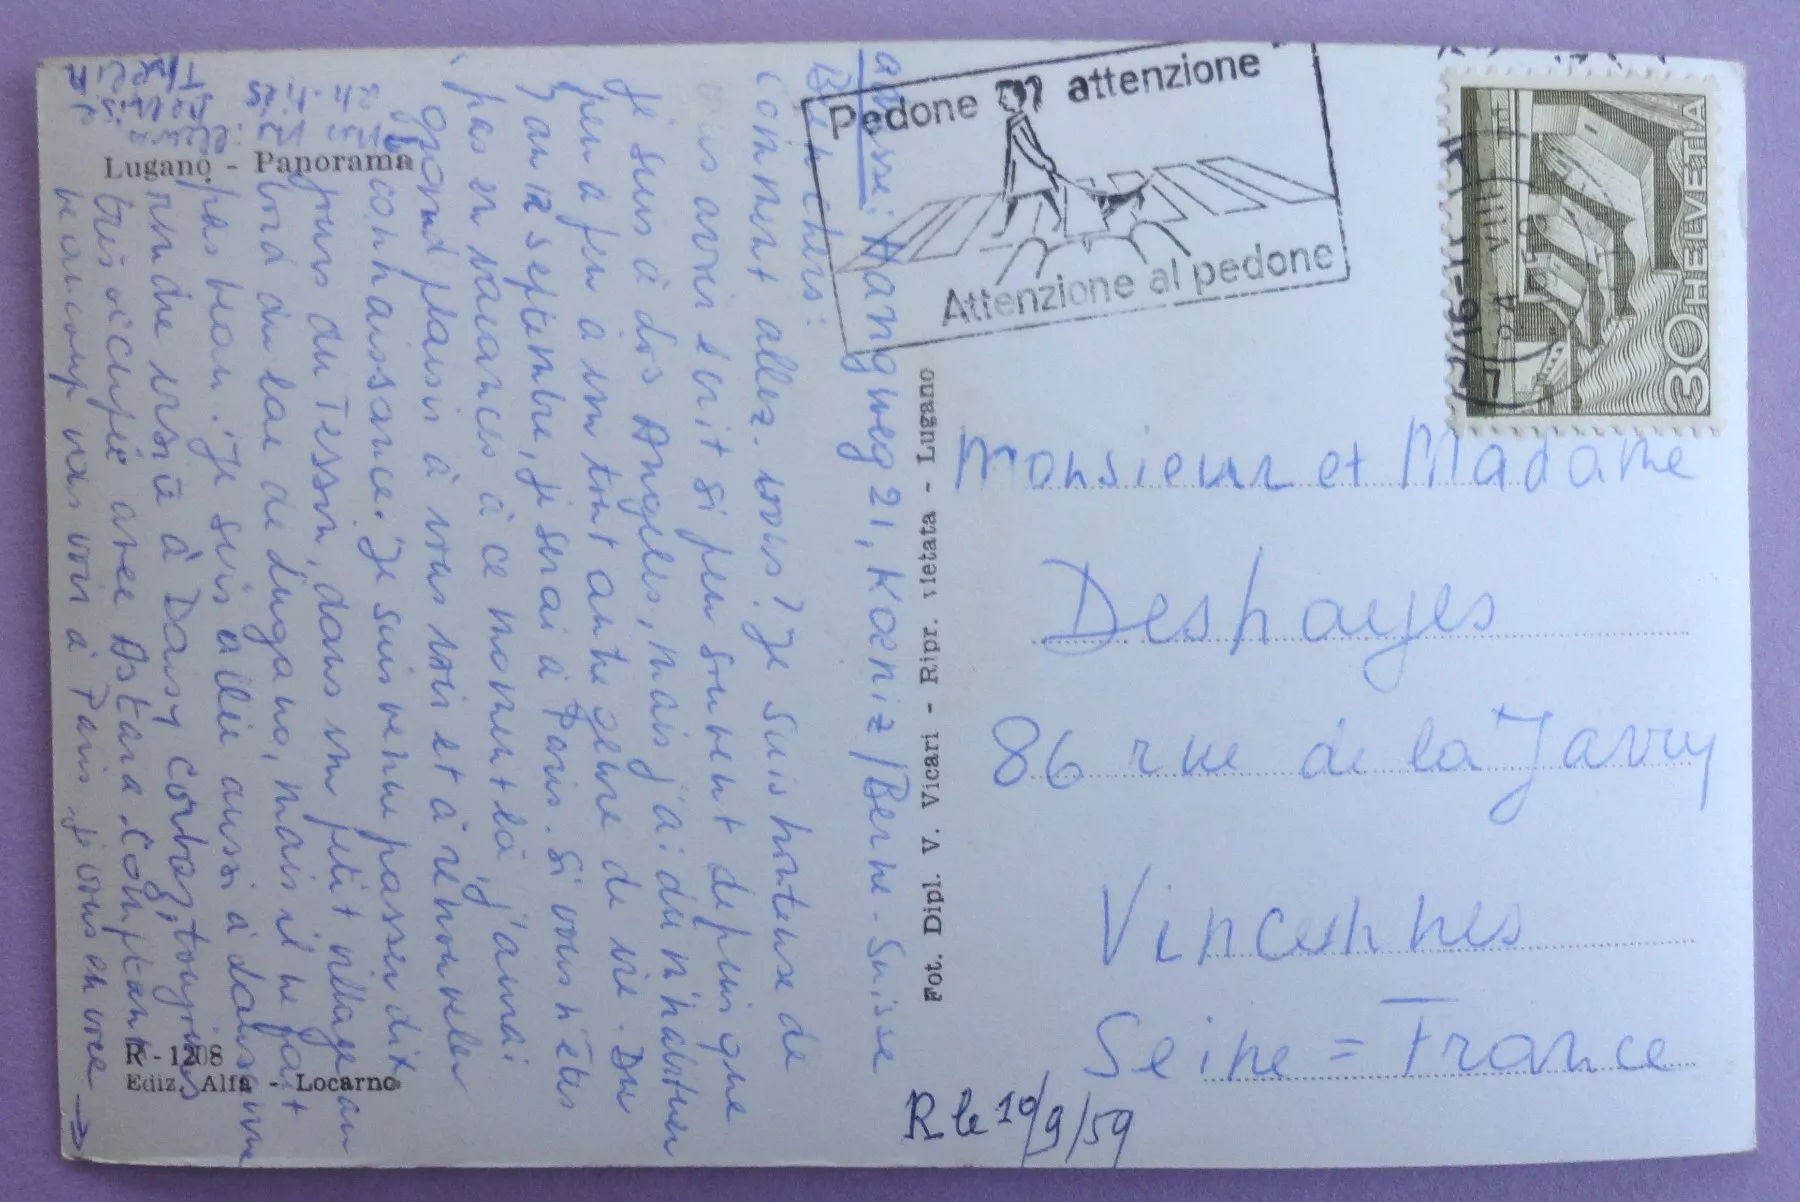 Lugano - Panorama
Pedone attenzione
Attenzione al pedone
HELVETIA
30
VIII
adresse: Hangweg 21, Koeniz / Berne - Suisse
Bien chers:
Comment allez-vous? Je suis honteuse de
vous avoir écrit si peu souvent depuis que
je suis à Los Angeles, mais j'ai dû m'habituer
peu à peu à un tout autre genre de vie. Du
7 au 12 septembre, je serai à Paris. Si vous n'êtes
pas en vacances à ce moment-là, j'aurai
grand plaisir à vous voir et à renouveler
connaissance. Je suis venue passer dix
jours au Tessin, dans un petit village au
bord du lac de Lugano, mais il ne fait
pas beau. Je suis allée aussi à Lausanne
rendre visite à Daisy toujours
très occupée avec Astara. Comptant
beaucoup vous voir à Paris, j'vous envoie →
Fot. Dipl. V. Vicari - Ripr. vietata - Lugano
Monsieur et Madame
Deshayes
86 rue de la Jarry
Vincennes
Seine = France
R - 1208
Ediz. Alfa - Locarno
R le 10/9/59